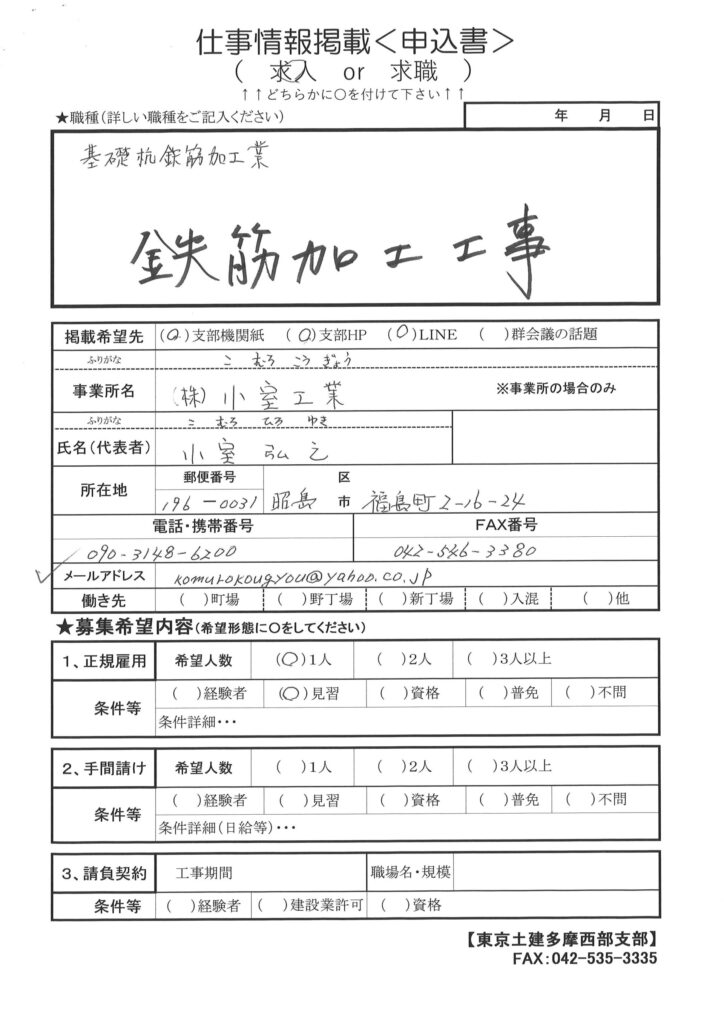 仕事情報掲載<申込書>
( 求人 or 求職 )
↑↑どちらかに○を付けて下さい↑↑
★職種(詳しい職種をご記入ください) 年 月 日
基礎杭鉄筋加工業
鉄筋加工工事
掲載希望先 (○)支部機関紙 (○)支部HP (○)LINE ( )群会議の話題
ふりがな こ むろ こう ぎょう
事業所名 (株)小室工業 ※事業所の場合のみ
ふりがな こ むろ ひろ ゆき
氏名(代表者) 小室 弘之
所在地 郵便番号 区
196-0031 昭島 市 福島町2-16-24
電話・携帯番号 FAX番号
090-3148-6200 042-546-3380
メールアドレス komurokougyou@yahoo.co.jp
働き先 ( )町場 ( )野丁場 ( )新丁場 ( )入混 ( )他
★募集希望内容(希望形態に○をしてください)
1、正規雇用 希望人数 (○)1人 ( )2人 ( )3人以上
条件等 ( )経験者 (○)見習 ( )資格 ( )普免 ( )不問
条件詳細・・・
2、手間請け 希望人数 ( )1人 ( )2人 ( )3人以上
条件等 ( )経験者 ( )見習 ( )資格 ( )普免 ( )不問
条件詳細(日給等)・・・
3、請負契約 工事期間 職場名・規模
条件等 ( )経験者 ( )建設業許可 ( )資格
【東京土建多摩西部支部】
FAX:042-535-3335